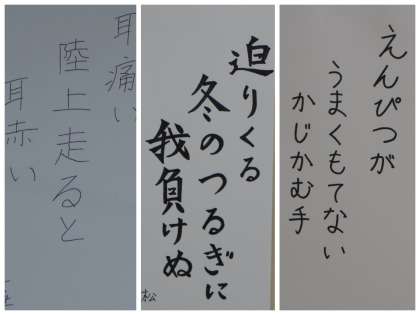 耳痛い
陸上走ると
耳赤い
迫りくる
冬のつるぎに
我負けぬ
松
えんぴつが
うまくもてない
かじかむ手